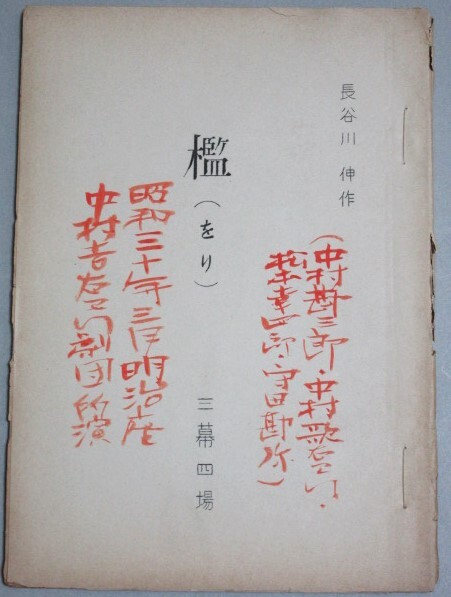 長谷川伸作
(中村勘三郎・中村歌右衛門・
松本幸四郎・守田勘弥)
檻(をり)
三幕四場
昭和三十年三月明治座
中村吉右衛門劇団所演